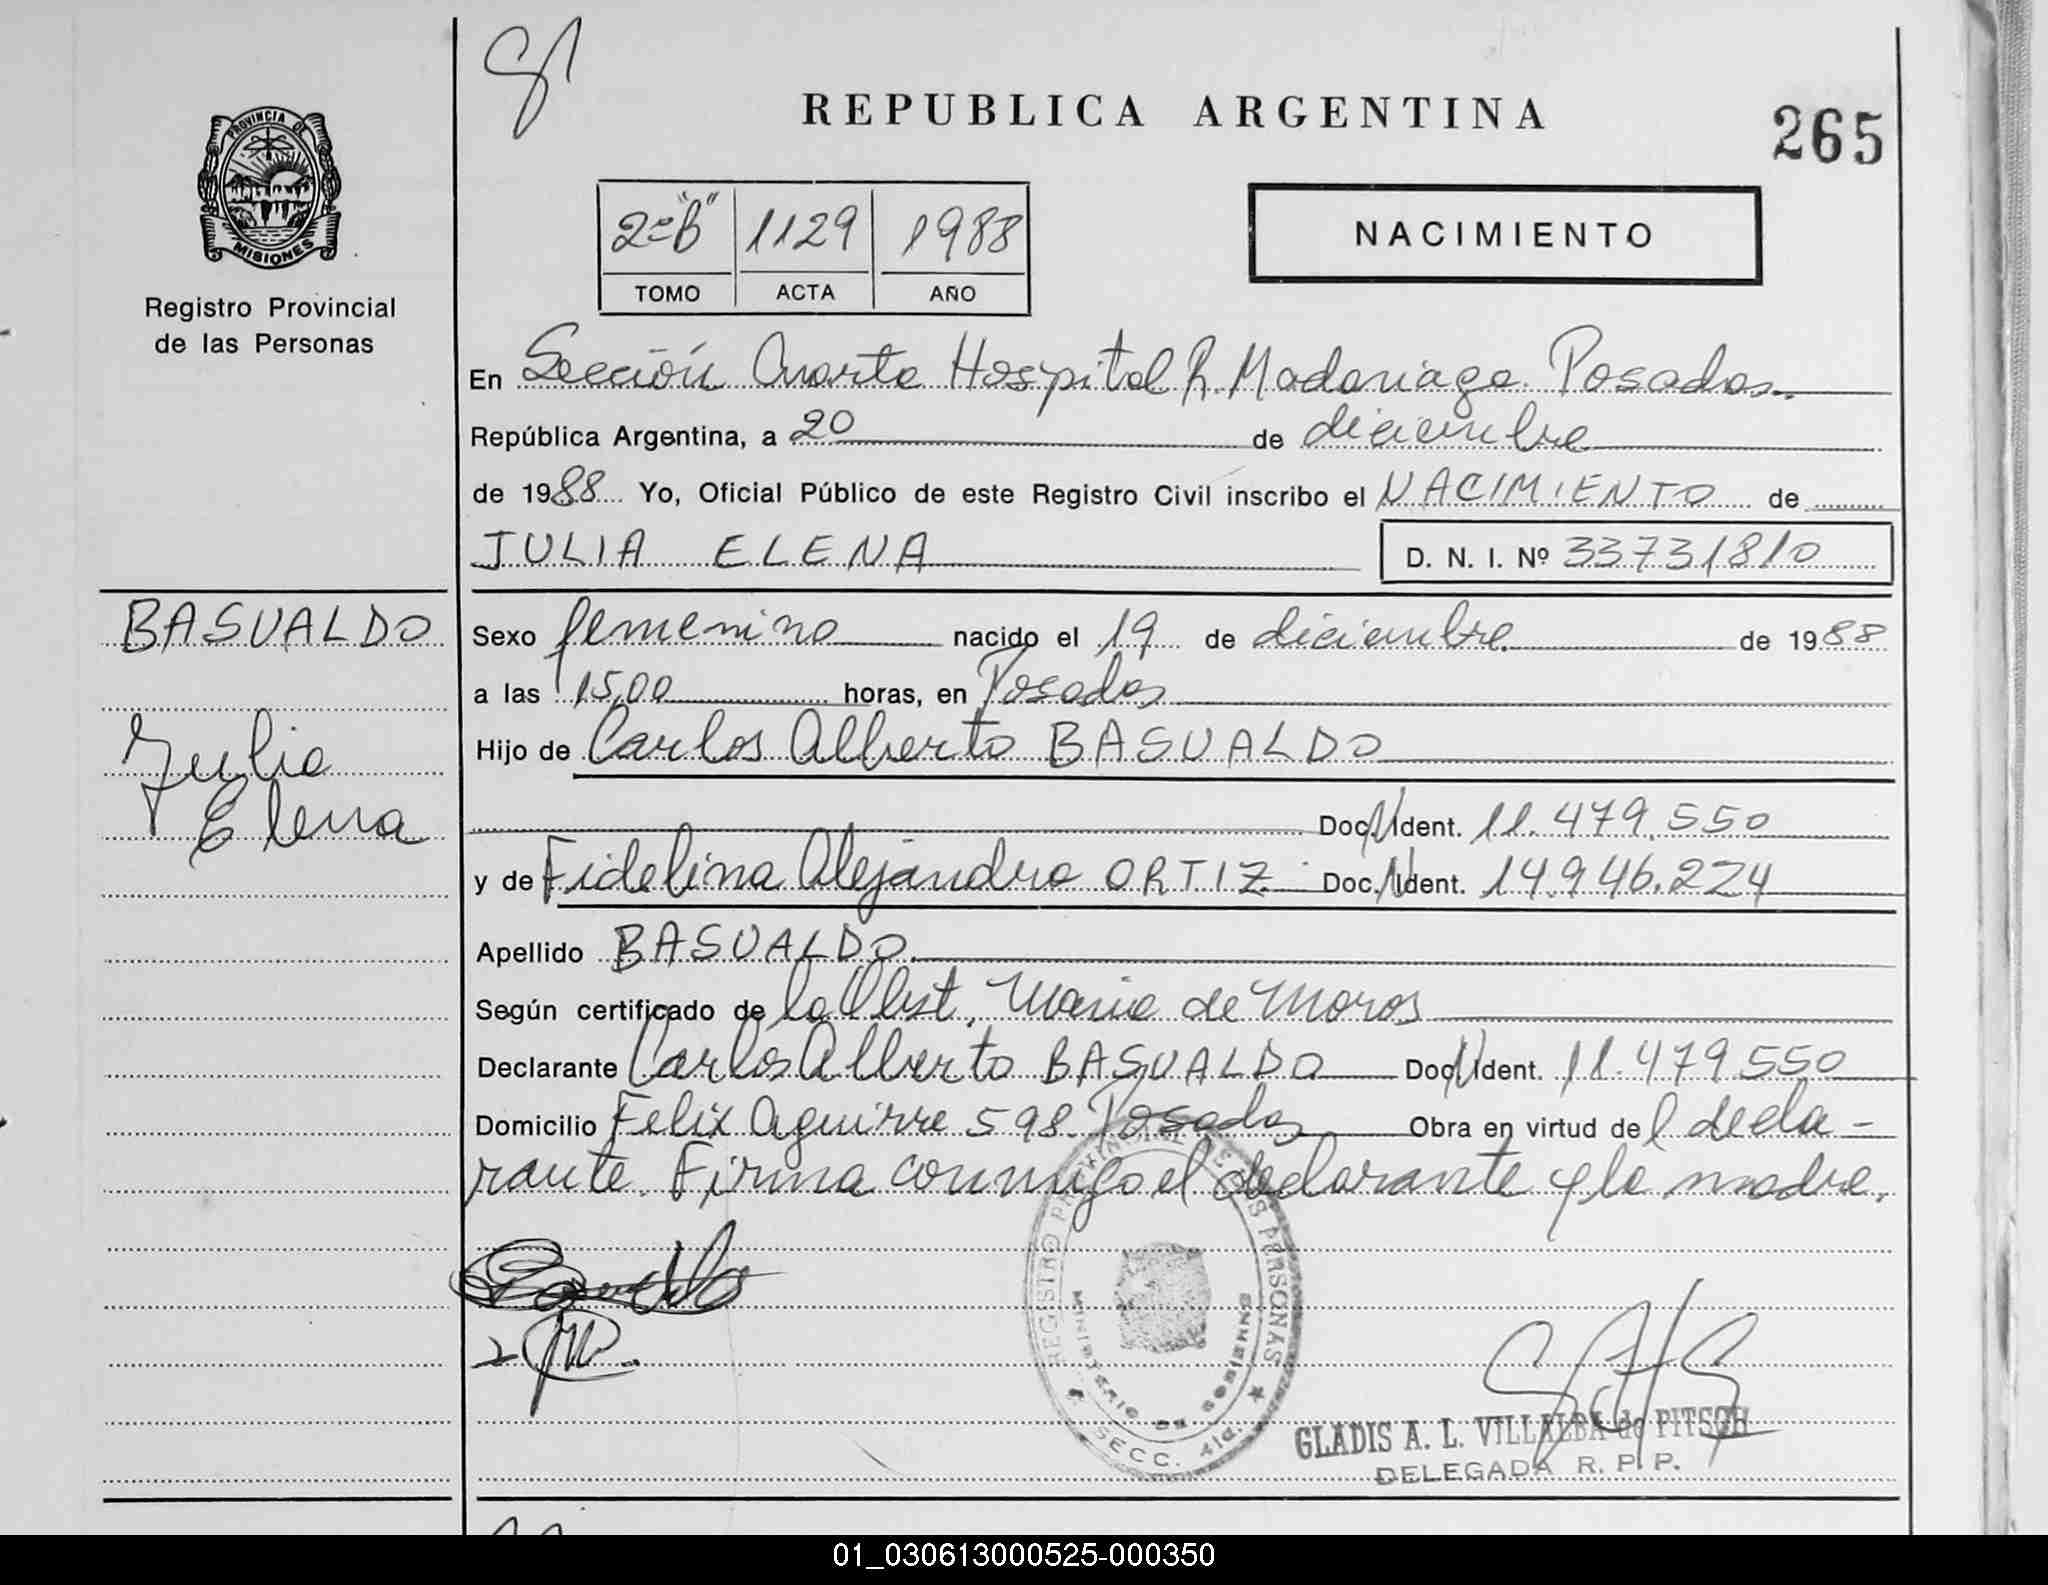 PROVINCIA DE
MISIONES
Registro Provincial
de las Personas
BASUALDO
Julia
Elena
REPUBLICA ARGENTINA
265
2º "B" 1129 1988
TOMO ACTA AÑO
NACIMIENTO
En Sección Cuarta Hospital R. Madariaga. Posadas.
República Argentina, a 20 de diciembre
de 1988 Yo, Oficial Público de este Registro Civil inscribo el NACIMIENTO de
JULIA ELENA D. N. I. Nº 33731810
Sexo femenino nacido el 19 de diciembre de 1988
a las 15,00 horas, en Posadas
Hijo de Carlos Alberto BASUALDO
Doc. N. Ident. 11.479.550
y de Fidelina Alejandra ORTIZ Doc. N. Ident. 14.946.274
Apellido BASUALDO
Según certificado de la Obst. Maria de Moros
Declarante Carlos Alberto BASUALDO Doc. N. Ident. 11.479550
Domicilio Felix Aguirre 598. Posadas Obra en virtud del decla-
rante. Firma conmigo el declarante y la madre.
REGISTRO PROVINCIAL DE LAS PERSONAS
MINISTERIO DE GOBIERNO
SECC. 4ta.
GLADIS A. L. VILLALBA de PITSCH
DELEGADA R. P. P.
01_030613000525-000350